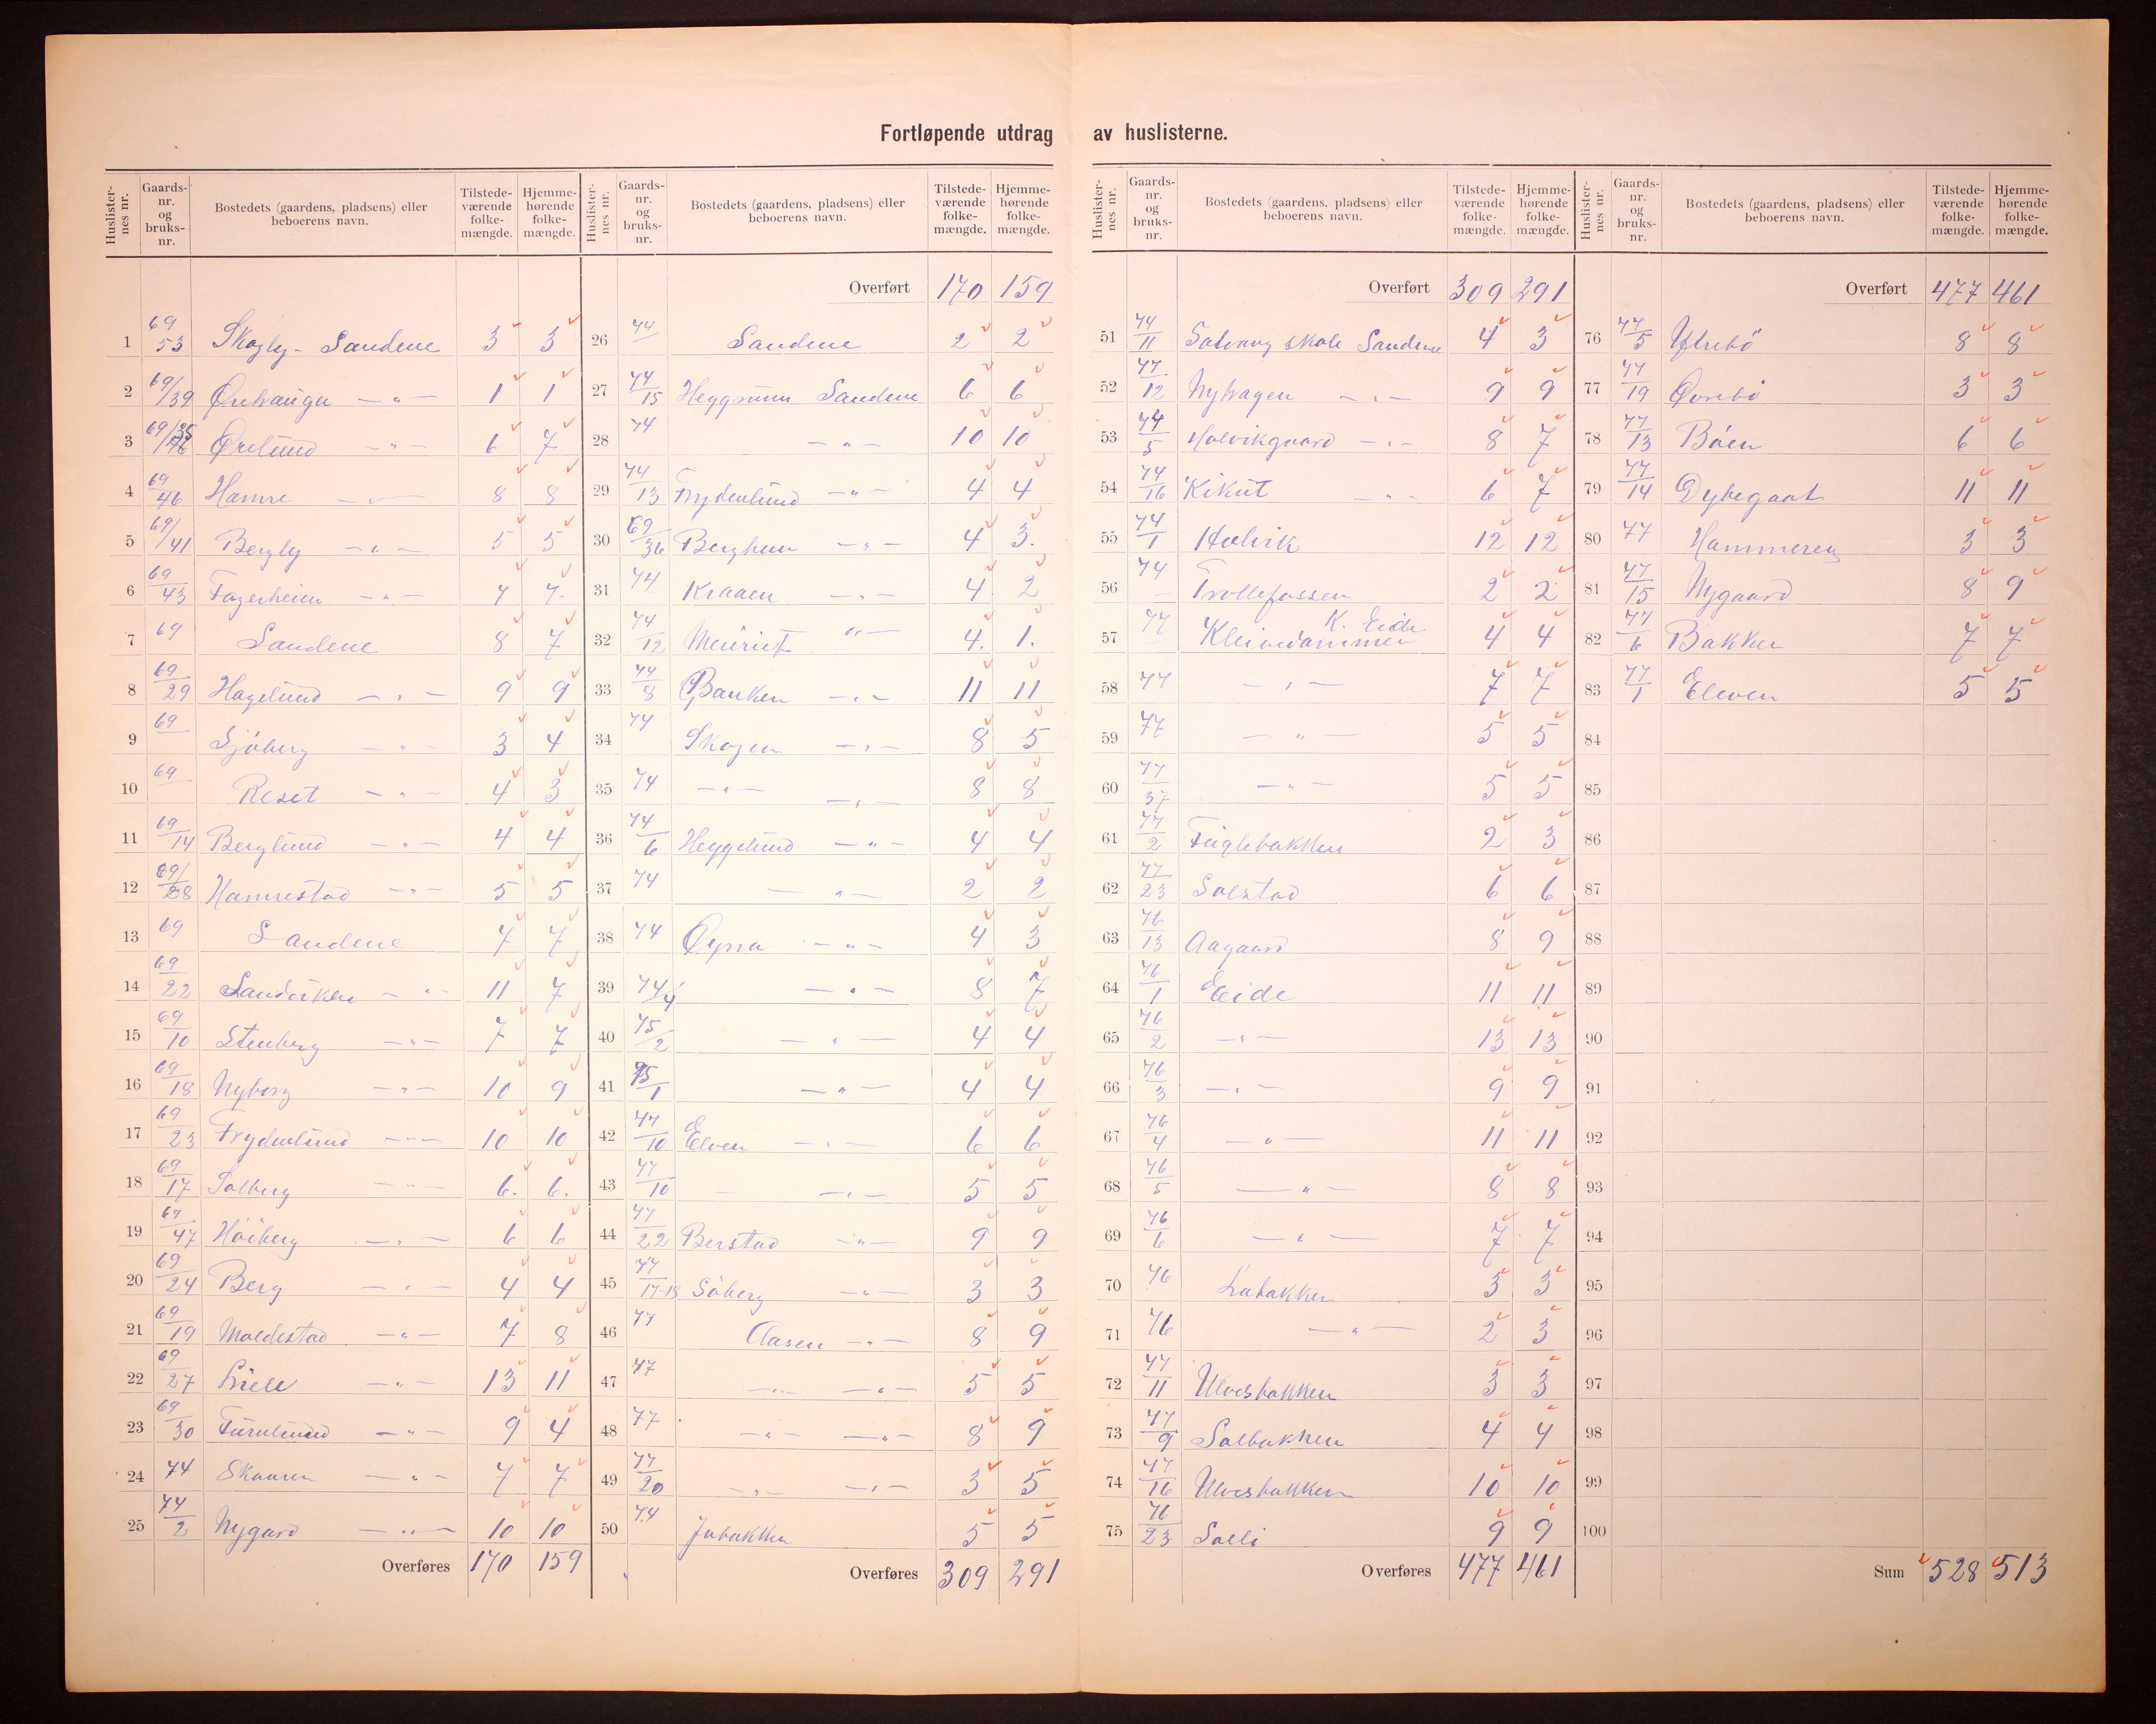 Fortløpende utdrag av huslisterne.
Huslister-nes nr. | Gaards-nr. og bruks-nr. | Bostedets (gaardens, pladsens) eller beboerens navn. | Tilstede-værende folke-mængde. | Hjemme-hørende folke-mængde.
1 69/53 Skogly - Sandene 3 3
2 69/39 — " — 1 1
3 Ørelund — " — 6 7
4 69/46 Hamre — " — 8 8
5 69/41 Bergly — " — 5 5
6 69/43 Fagerheim — " — 7 7.
7 69 Sandene 8 7
8 69/29 Hagelund — " — 9 9
9 69 Sjöberg — " — 3 4
10 69 Reset — " — 4 3
11 69/14 Berglund — " — 4 4
12 69/28 Hamrestad — " — 5 5
13 69 Sandene 7 7
14 69/22 Sandviken — " — 11 7
15 69/10 Stenberg — " — 7 7
16 69/18 Nyborg — " — 10 9
17 69/23 Frydenlund — " — 10 10
18 69/17 Solberg — " — 6. 6.
19 69/47 Höiberg — " — 6 6
20 69/24 Berg — " — 4 4
21 69/19 Moldestad — " — 7 8
22 69/27 — " — 13 11
23 69/30 Furulund — " — 9 4
24 74 Skaaren — " — 7 7
25 74/2 Nygard — " — 10 10
Overføres 170 159
Huslister-nes nr. | Gaards-nr. og bruks-nr. | Bostedets (gaardens, pladsens) eller beboerens navn. | Tilstede-værende folke-mængde. | Hjemme-hørende folke-mængde.
Overført 170 159
26 74 Sandene 2 2
27 74/15 Heggrunn Sandene 6 6
28 74 — " — 10 10
29 74/13 Frydenlund — " — 4 4
30 69/36 Bergheim — " — 4 3.
31 74 Kraaen — " — 4 2
32 74/12 Meieriet " — 4. 1.
33 74/8 Banken — " — 11 11
34 74 Skogen — " — 8 5
35 74 — " — — " — 8 8
36 74/6 Heggelund — " — 4 4
37 74 — " — 2 2
38 74 Øyra — " — 4 3
39 74/4 — " — 8 7
40 75/2 — " — 4 4
41 75/1 — " — 4 4
42 77/10 Elven — " — 6 6
43 77/10 — — " — 5 5
44 77/22 Berstad — " — 9 9
45 77/17-18 Söberg — " — 3 3
46 77 Aasen — " — 8 9
47 77 — " — — " — 5 5
48 77 — " — — " — 8 9
49 77/20 — " — — " — 3 5
50 74 Jubakken 5 5
Overføres 309 291
Huslister-nes nr. | Gaards-nr. og bruks-nr. | Bostedets (gaardens, pladsens) eller beboerens navn. | Tilstede-værende folke-mængde. | Hjemme-hørende folke-mængde.
Overført 309 291
51 74/11 Solvang skole Sandene 4 3
52 77/12 Nyhagen — " — 9 9
53 74/5 Holvikgaard — " — 8 7
54 74/16 Kikut — " — 6 7
55 74/1 Holvik 12 12
56 74 Trollefossen 2 2
57 77 Kleivedammen K. Eide 4 4
58 77 — " — 7 7
59 77 — " — 5 5
60 77/37 — " — 5 5
61 77/2 Fuglebakken 2 3
62 77/23 Solstad 6 6
63 76/13 Aagaard 8 9
64 76/1 Eide 11 11
65 76/2 — " — 13 13
66 76/3 — " — 9 9
67 76/4 — " — 11 11
68 76/5 — " — 8 8
69 76/6 — " — 7 7
70 76 3 3
71 76 — " — 2 3
72 77/11 Ulvesbakken 3 3
73 77/9 Solbakken 4 4
74 77/16 Ulvesbakken 10 10
75 76/23 Solli 9 9
Overføres 477 461
Huslister-nes nr. | Gaards-nr. og bruks-nr. | Bostedets (gaardens, pladsens) eller beboerens navn. | Tilstede-værende folke-mængde. | Hjemme-hørende folke-mængde.
Overført 477 461
76 77/5 Ytrebö 8 8
77 77/19 Övrebö 3 3
78 77/13 Böen 6 6
79 77/14 11 11
80 77 Hammeren 3 3
81 77/15 Nygaard 8 9
82 77/6 Bakken 7 7
83 77/1 Eleven 5 5
84
85
86
87
88
89
90
91
92
93
94
95
96
97
98
99
100
Sum 528 513